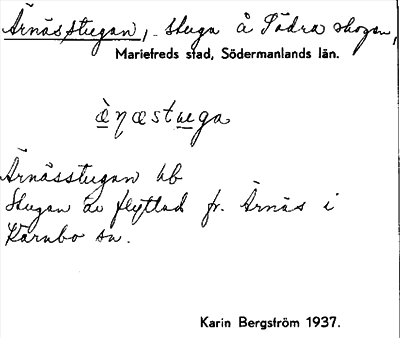 Ärnässtugan, stuga å Södra skogen,
Mariefreds stad, Södermanlands län.
æ̀ŋæstuega
Ärnässtugan hb
Stugan är flyttad fr. Ärnäs i
Kärnbo sn.
Karin Bergström 1937.